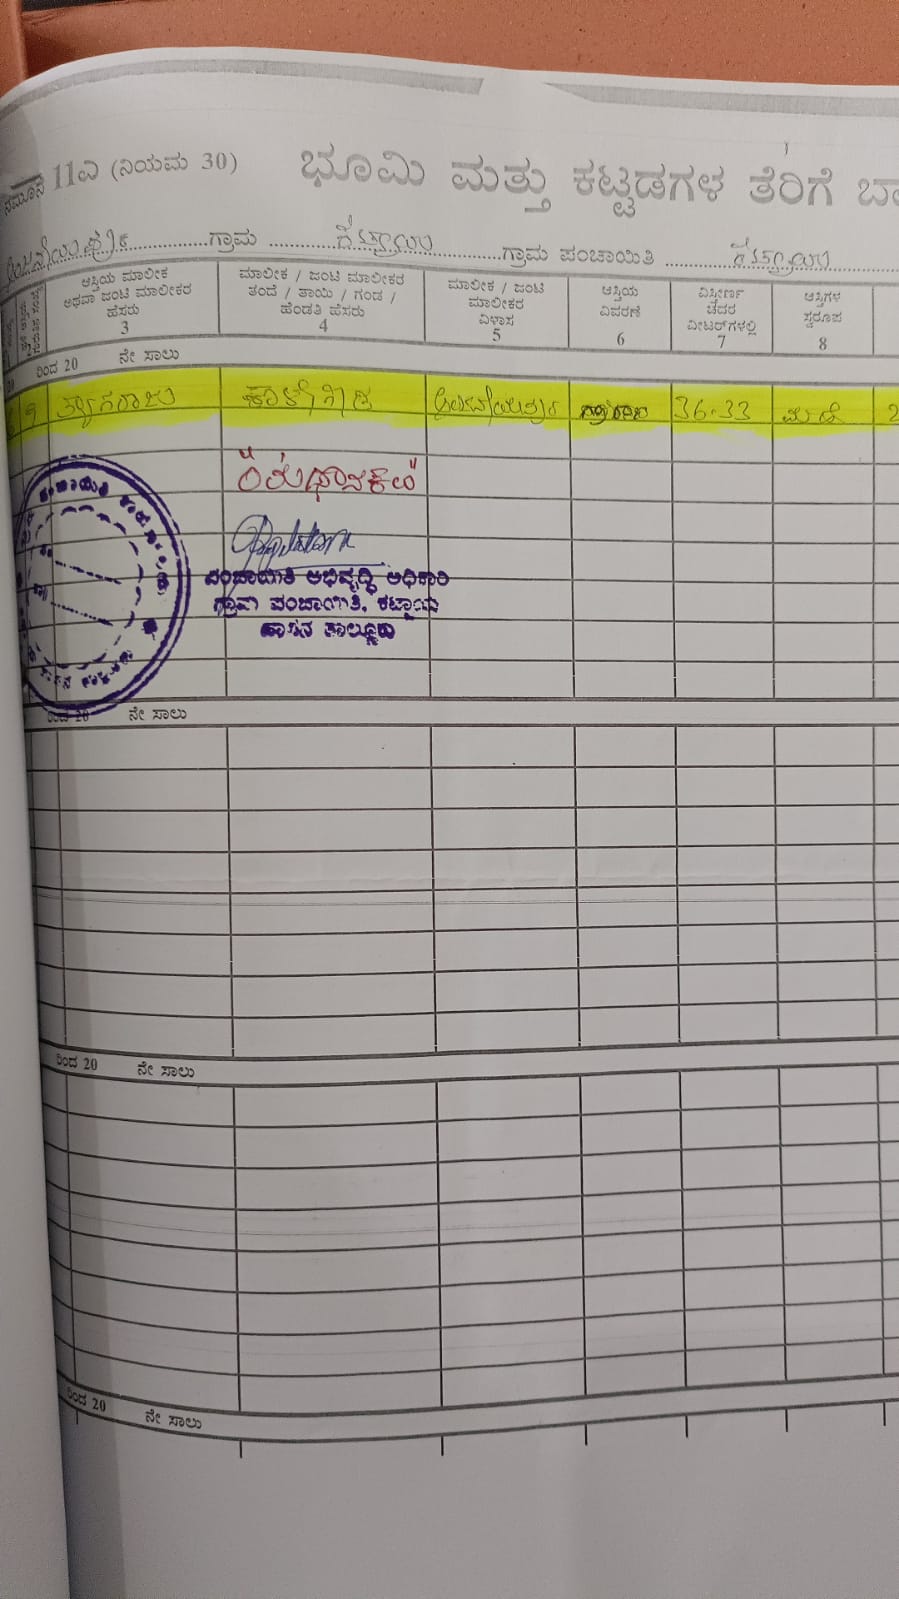 ನಮೂನೆ 11ಎ (ನಿಯಮ 30) ಭೂಮಿ ಮತ್ತು ಕಟ್ಟಡಗಳ ತೆರಿಗೆ ಬಾ
ಗ್ರಾಮ ಗ್ರಾಮ ಪಂಚಾಯಿತಿ
ಆಸ್ತಿಯ ಮಾಲೀಕ ಅಥವಾ ಜಂಟಿ ಮಾಲೀಕರ ಹೆಸರು
3
ಮಾಲೀಕ / ಜಂಟಿ ಮಾಲೀಕರ ತಂದೆ / ತಾಯಿ / ಗಂಡ / ಹೆಂಡತಿ ಹೆಸರು
4
ಮಾಲೀಕ / ಜಂಟಿ ಮಾಲೀಕರ ವಿಳಾಸ
5
ಆಸ್ತಿಯ ವಿವರಣೆ
6
ವಿಸ್ತೀರ್ಣ ಚದರ ಮೀಟರ್‌ಗಳಲ್ಲಿ
7
ಆಸ್ತಿಗಳ ಸ್ವರೂಪ
8
ರಿಂದ 20 ನೇ ಸಾಲು
ತ್ಯಾಗರಾಜು ಕಾಳೇಗೌಡ 36.33 ಮನೆ 2
ಪಂಚಾಯಿತಿ ಅಭಿವೃದ್ಧಿ ಅಧಿಕಾರಿ
ಗ್ರಾಮ ಪಂಚಾಯಿತಿ, ಕಟ್ಟಾಯ
ಹಾಸನ ತಾಲ್ಲೂಕು
ರಿಂದ 20 ನೇ ಸಾಲು
ರಿಂದ 20 ನೇ ಸಾಲು
ರಿಂದ 20 ನೇ ಸಾಲು